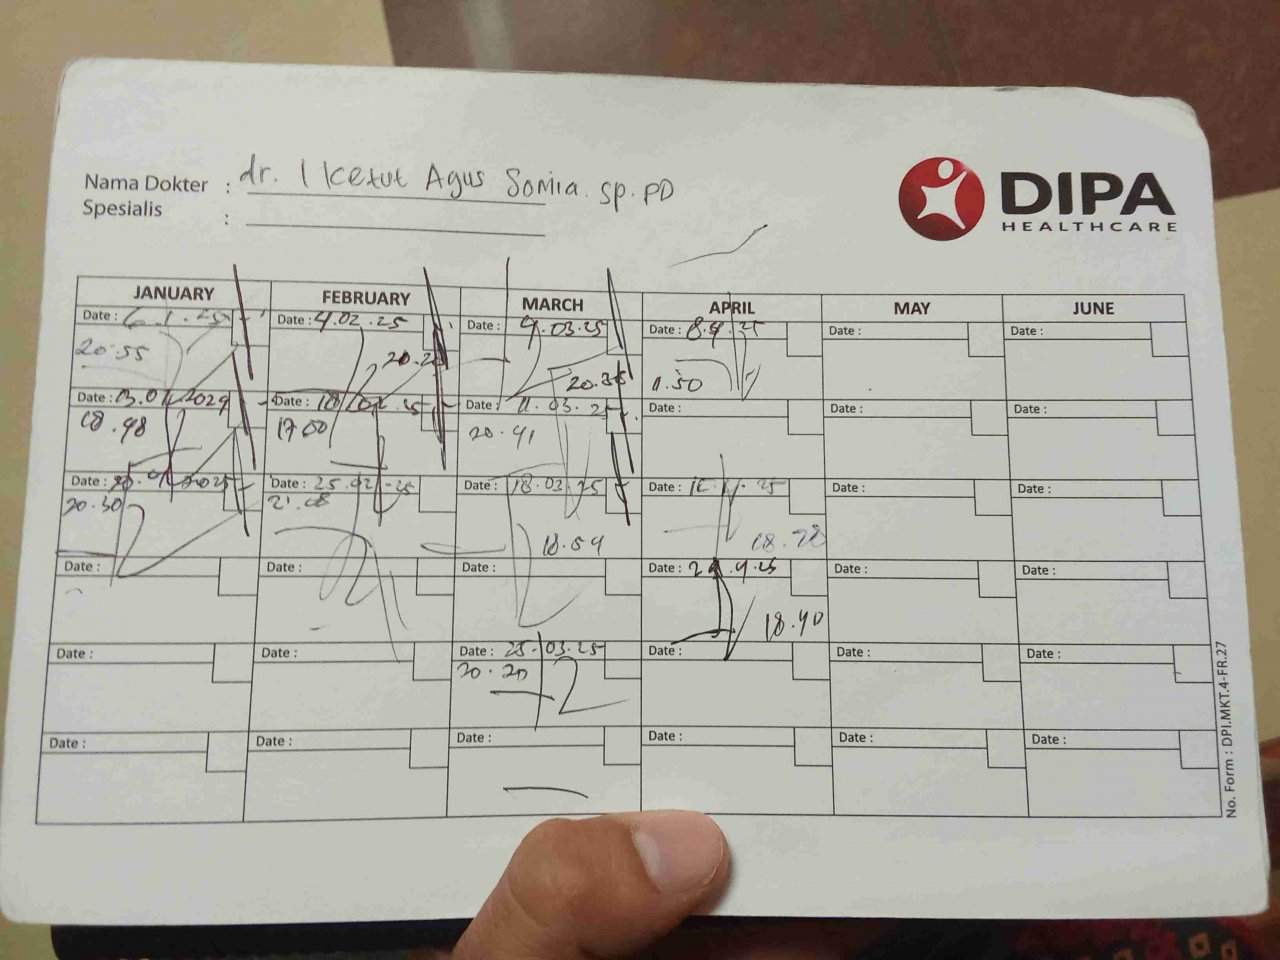 Nama Dokter : dr. I Ketut Agus Somia. sp. PD
Spesialis :
DIPA
HEALTHCARE
JANUARY FEBRUARY MARCH APRIL MAY JUNE
Date : 6.1.25 Date : 4.02.25 Date : 4.03.25 Date : 8.4.25 Date : Date :
20.55 20.20 20.35 11.50
Date : Date : 18.02.25 Date : 11.03.25
18.48 17.00 20.41
Date : Date : 25.02.25 Date : 18.03.25 Date : Date : Date :
20.30 21.08 18.59 18.28
Date : Date : Date : Date : Date : Date :
18.40
Date : Date : Date : 25.03.25 Date : Date : Date :
20.20
Date : Date : Date : Date : Date : Date :
No. Form : DPI.MKT.4-FR.27